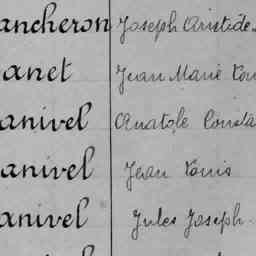 ancheron Joseph Aristide
anet Jean Marie Lou
anivel Anatole Consta
anivel Jean Louis
anivel Jules Joseph